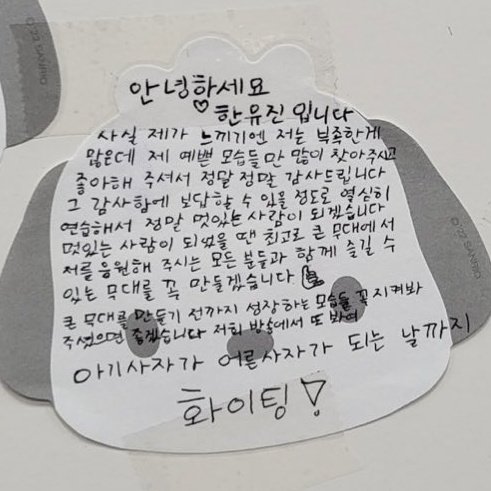 안녕하세요
♡ 한유진입니다
사실 제가 느끼기엔 저는 부족한게
많은데 제 예쁜 모습들만 많이 찾아주시고
좋아해 주셔서 정말 정말 감사드립니다
그 감사함에 보답할 수 있을 정도로 열심히
연습해서 정말 멋있는 사람이 되겠습니다
멋있는 사람이 되었을 땐 최고로 큰 무대에서
저를 응원해 주시는 모든 분들과 함께 즐길 수
있는 무대를 꼭 만들겠습니다
큰 무대를 만들기 전까지 성장하는 모습들 꼭 지켜봐
주셨으면 좋겠습니다 저희 방송에서 또 봐여
아기사자가 어른사자가 되는 날까지
화이팅!
© '22 SANRIO
© '22 SANRIO